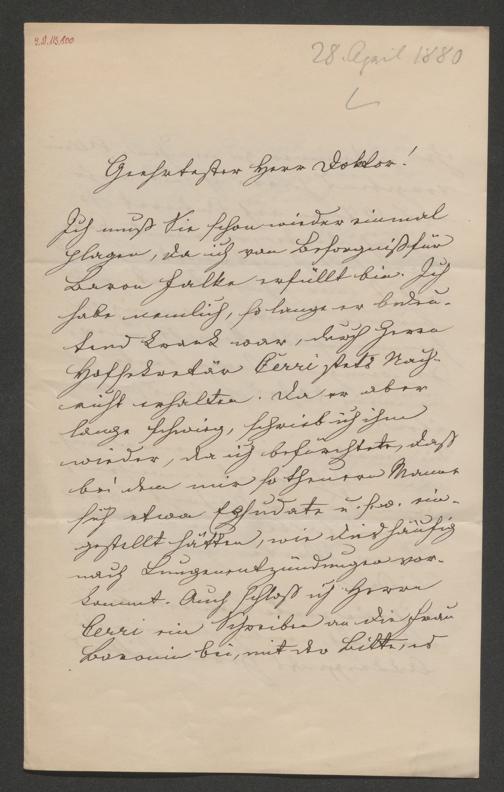 28. April 1880
Geehrtester Herr Doktor!
Ich muß Sie schon wieder einmal
plagen, da ich von Besorgniß für
Baron Falke erfüllt bin. Ich
habe nemlich, so lange er bedeu-
tend krank war, durch Herrn
Hofsekretär Cerri stets Nach-
richt erhalten. Da er aber
lange schwieg, schrieb ich ihm
wieder, da ich befürchtete, daß
bei dem mir so theuern Manne
sich etwa Exsudate u. s. w. ein-
gestellt hätten, wie dies häufig
nach Lungenentzündungen vor-
kommt. Auch schloß ich Herrn
Cerri ein Schreiben an die Frau
Baronin bei, mit der Bitte, es